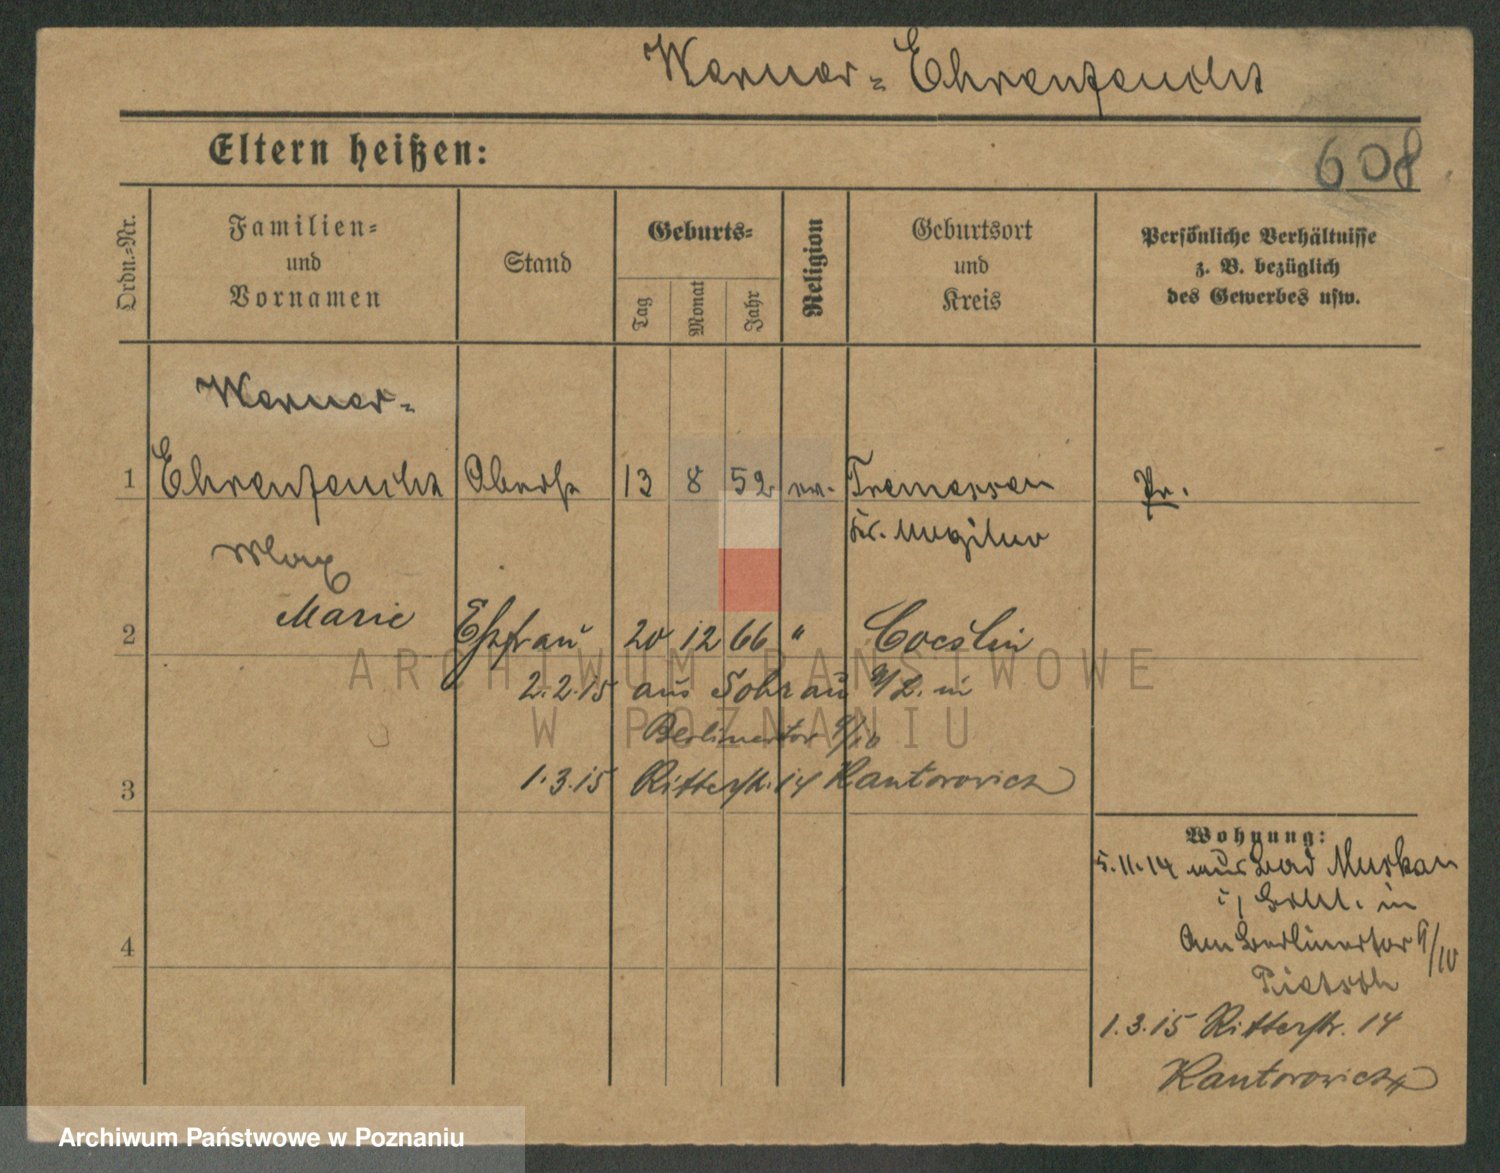 Werner-Ehrenfeucht
Eltern heißen:
608
Ordn.-Nr.
Familien-
und
Vornamen
Stand
Geburts-
Tag
Monat
Jahr
Religion
Geburtsort
und
Kreis
Persönliche Verhältnisse
z. B. bezüglich
des Gewerbes usw.
Werner-
1 Ehrenfeucht Oberst 13 8 52 ev. Tremessen Pr.
Kr. Mogilno
Max
2 Marie Ehefrau 20 12 66 " Coeslin
2.2.15 aus Sohrau in
Berlinertor 9/10
3 1.3.15 Ritterstr. 14 Kantorowicz
Wohnung:
5.11.14 aus Bad Muskau
in
Am Berlinertor 9/10
Pietsch
4
1.3.15 Ritterstr. 14
Kantorowicz
ARCHIWUM PAŃSTWOWE
W POZNANIU
Archiwum Państwowe w Poznaniu